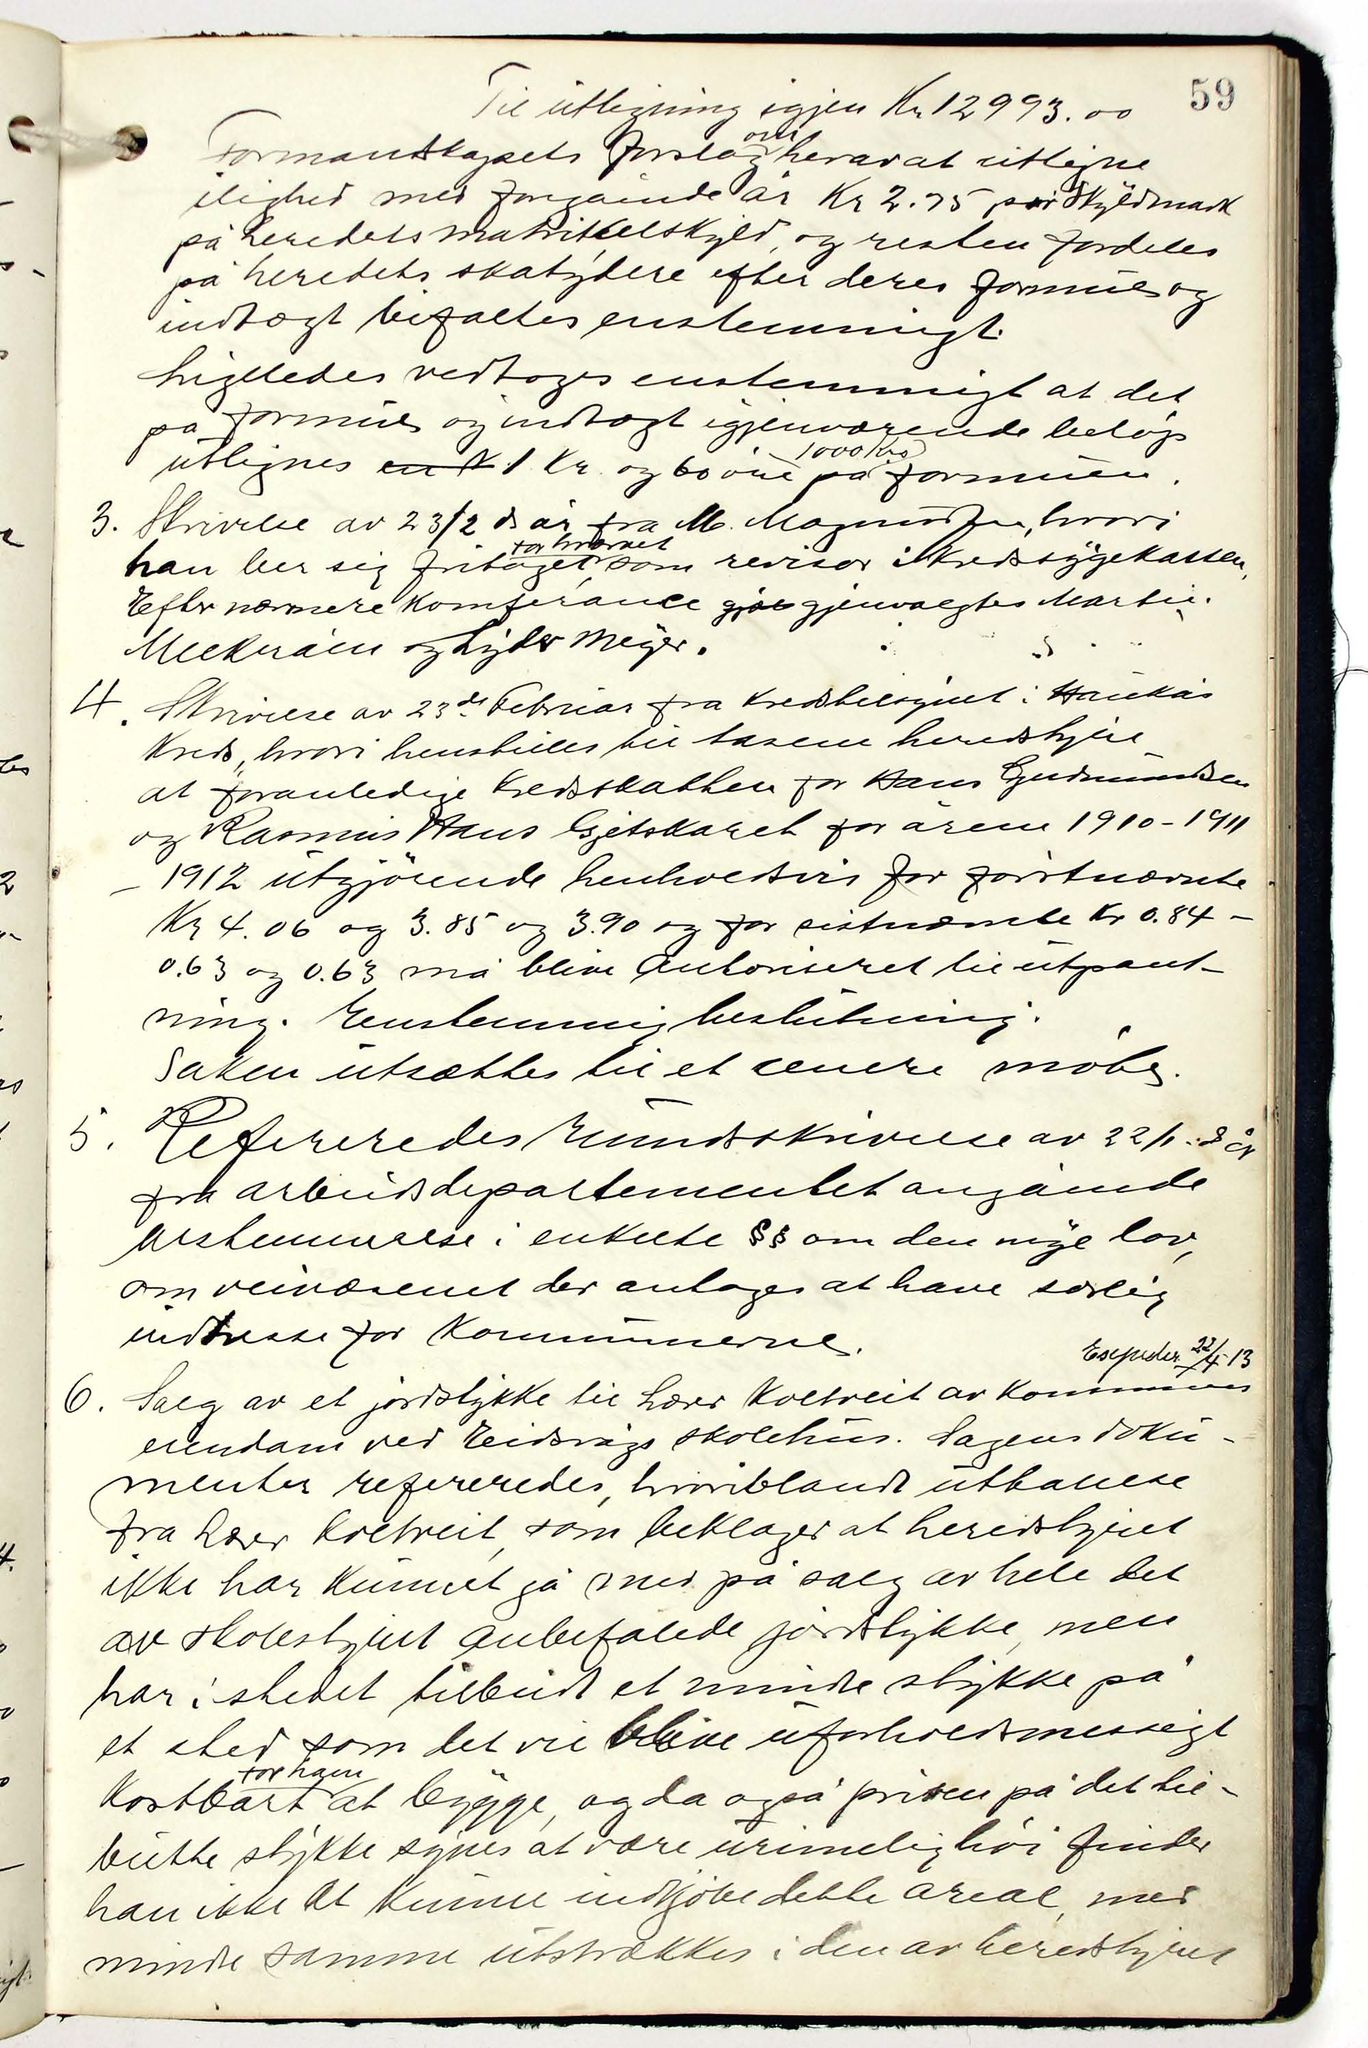 59
Til utligning igjen Kr. 12993.00
Formandskapets forslag om herav at utligne
ilighed med foregående år Kr 2.75 pr skyldmark
på heredets matrikelskyld, og resten fordeles
på heredets skatydere efter deres formue og
indtægt bifaltes enstemmigt.
Ligeledes vedtoges enstemmigt at det
på formue og indtægt igjenværende beløp
utlignes en K 1 Kr. og 60 øre på 1000 Kr formue.
3. Skrivelse av 23/2 ds år fra M. Magnussen, hvori
han ber sig fritaget for hvervet som revisor i Kredssygekassen,
Efter nærmere Komferance gjenvalgtes Martin
Meckman og Lyder Meyer.
4. Skrivelse av 23de Februar fra Kredstilsynet i Haukås
Kreds, hvori henstilles til Åsene heredstyre
at foranledige Kredsskatten for Hans Gudmundsen
og Rasmus Hans Gjetskaret for årene 1910 - 1911
- 1912 utgjørende henholdsvis for førstnævnte
Kr 4.06 og 3.85 og 3.90 og for sistnæmte Kr 0.84 -
0.63 og 0.63 må blive Autoriseret til utpant-
ning. Enstemmig beslutning.
Saken utsættes til et cenere møte.
5. Refereredes Rundskrivelse av 22/1. d år
fra arbeidsdepartementet angående
bestemmelse i enkelte §§ om den nye lov,
om veivæsenet der antages at have særlig
indtresse for Kommunerne.
Expeder 22/4 13
6. Salg av et jordstykke til Lærer Koltveit av Kommunens
eiendam ved Eidsvågs skolehus. Sagens doku-
menter refereredes, hvoriblandt uttalelse
fra Lærer Koltveit, som beklager at heredstyret
ikke har kunnet gå med på salg av hele det
av skolestyret anbefalede jordstykke, men
har i stedet tilbudt et mindre stykke på
et sted som det vil blive uforholdsmessigt
Kostbart for ham at bygge, og da også prisen på det til-
butte stykke synes at være urimelig høi finder
han ikke at kunne indkjøbe dette areal, med
mindre samme utstrækkes i den av heredstyret